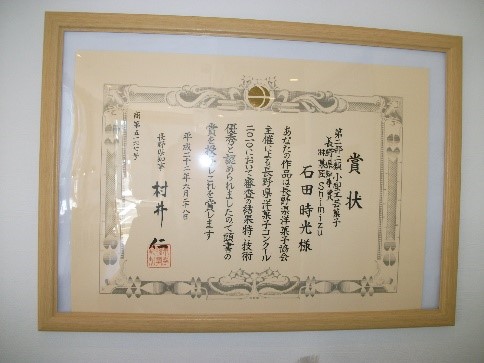 賞状
第二部二類 小型工芸菓子
長野県知事賞
菓匠Shimizu
石田時光様
あなたの作品は長野県洋菓子協会
主催による長野県洋菓子コンクール
二〇一〇において審査の結果特に技術
優秀と認められましたので頭書の
賞を授与しこれを賞します
平成二十二年六月二十八日
長野県知事 村井 仁